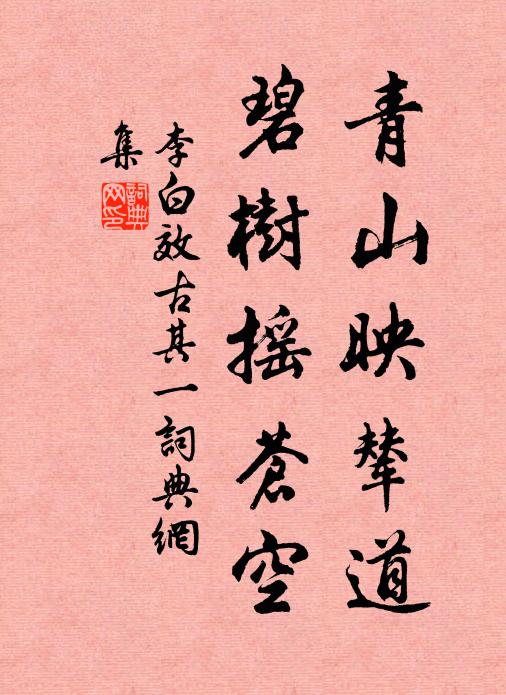 青山映輦道
碧樹摇蒼空
李白效古其一詞典網
集
詞典网印